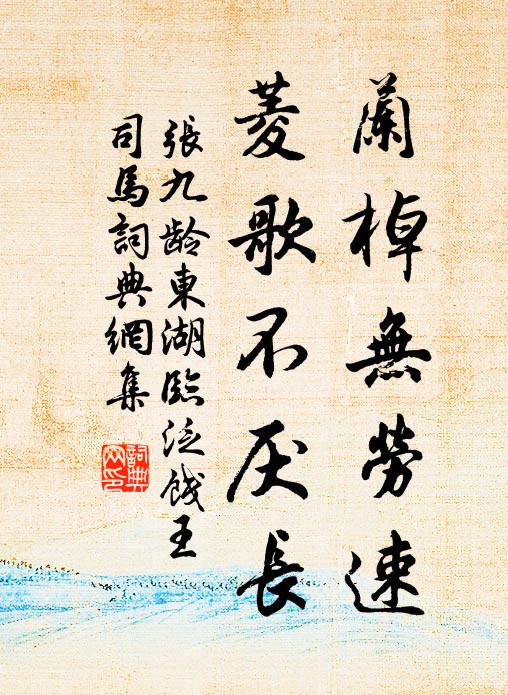 蘭棹無勞速
菱歌不厌長
張九龄東湖臨泛餞王
司馬詞典網集
詞典
网印